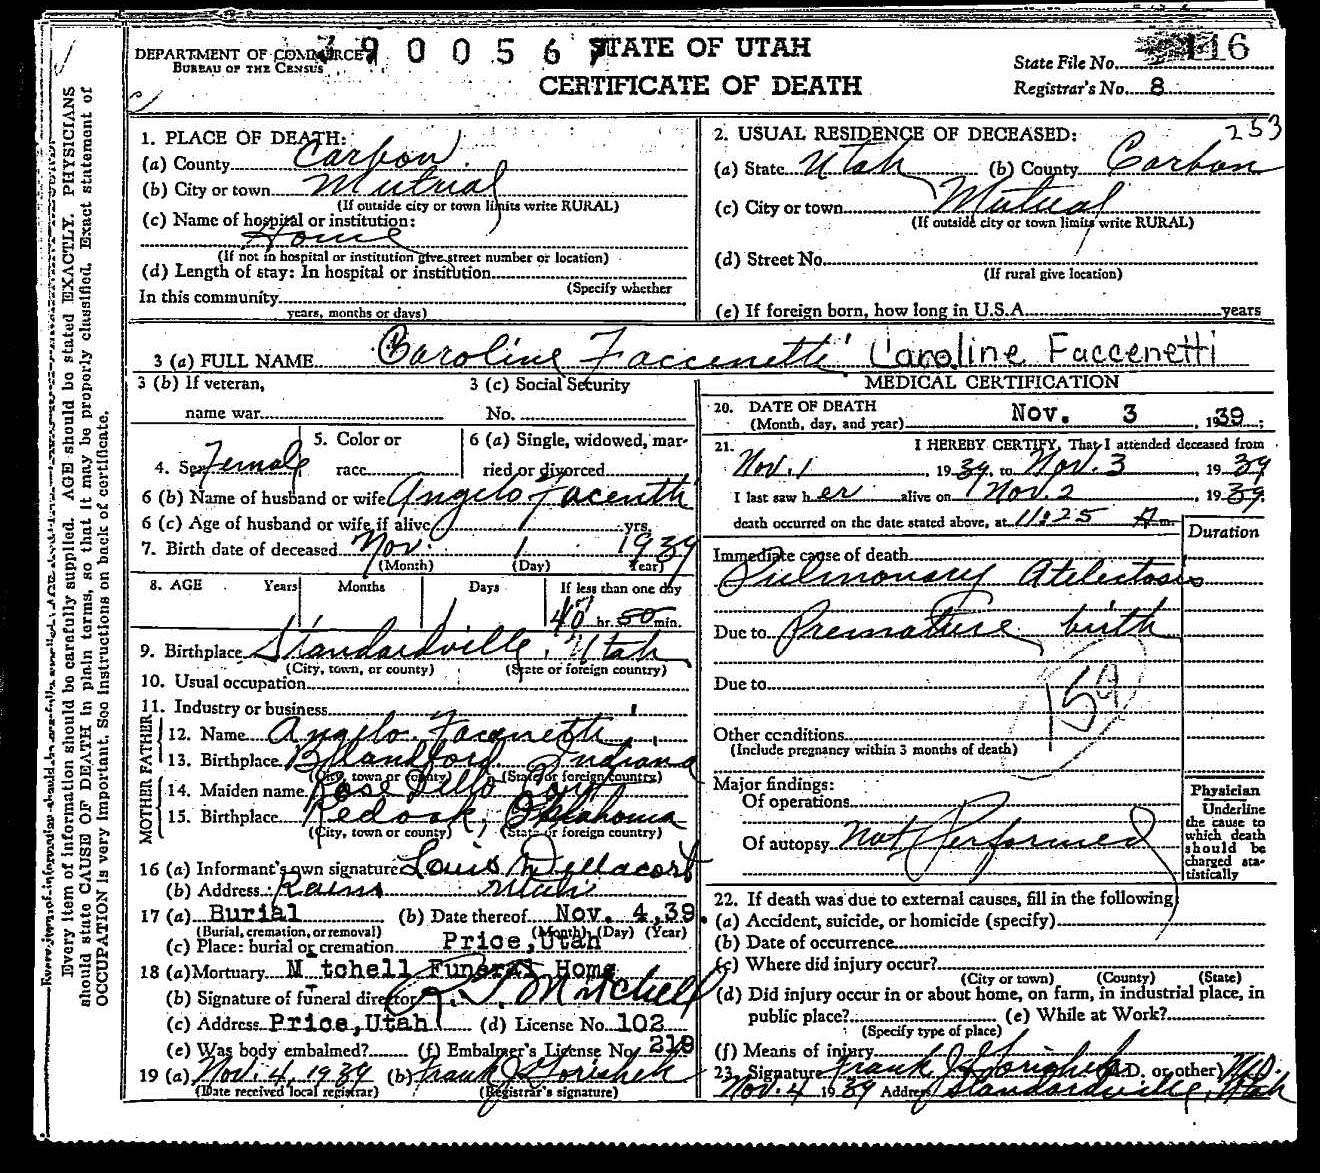 DEPARTMENT OF COMMERCE
BUREAU OF THE CENSUS
390056
STATE OF UTAH
CERTIFICATE OF DEATH
State File No. 116
Registrar's No. 8
Every item of information should be carefully supplied. AGE should be stated EXACTLY. PHYSICIANS
should state CAUSE OF DEATH in plain terms, so that it may be properly classified. Exact statement of
OCCUPATION is very important. See instructions on back of certificate.
1. PLACE OF DEATH:
(a) County Carbon
(b) City or town Mutual
(If outside city or town limits write RURAL)
(c) Name of hospital or institution:
Home
(If not in hospital or institution give street number or location)
(d) Length of stay: In hospital or institution
(Specify whether
In this community
years, months or days)
2. USUAL RESIDENCE OF DECEASED: 253
(a) State Utah (b) County Carbon
(c) City or town Mutual
(If outside city or town limits write RURAL)
(d) Street No.
(If rural give location)
(e) If foreign born, how long in U.S.A. years
3 (a) FULL NAME Caroline Faccenetti Caroline Faccenetti
3 (b) If veteran,
name war
3 (c) Social Security
No.
4. Sex Female
5. Color or
race
6 (a) Single, widowed, mar-
ried or divorced
6 (b) Name of husband or wife Angelo Facenetti
6 (c) Age of husband or wife if alive yrs.
7. Birth date of deceased Nov. 1 1939
(Month) (Day) (Year)
8. AGE Years Months Days If less than one day
40 hr. 50 min.
9. Birthplace Standardville, Utah
(City, town, or county) (State or foreign country)
10. Usual occupation
11. Industry or business
FATHER
12. Name Angelo Facenetti
13. Birthplace Blandford Indiana
(City, town or county) (State or foreign country)
MOTHER
14. Maiden name Rose Dello
15. Birthplace Redoak, Oklahoma
(City, town or county) (State or foreign country)
16 (a) Informant's own signature Louis Dellacort
(b) Address Rains Utah
17 (a) Burial (b) Date thereof Nov. 4,39.
(Burial, cremation, or removal) (Month) (Day) (Year)
(c) Place: burial or cremation Price,Utah
18 (a) Mortuary Mitchell Funeral Home
(b) Signature of funeral director Mitchell
(c) Address Price,Utah (d) License No. 102
(e) Was body embalmed? (f) Embalmer's License No. 219
19 (a) Nov. 4, 1939 (b) Frank J Gorishek
(Date received local registrar) (Registrar's signature)
MEDICAL CERTIFICATION
20. DATE OF DEATH
(Month, day, and year) Nov. 3, 1939;
21. I HEREBY CERTIFY, That I attended deceased from
Nov. 1, 1939, to Nov. 3, 1939
I last saw her alive on Nov. 2, 1939;
death occurred on the date stated above, at 11:25 A m.
Duration
Immediate cause of death
Pulmonary Atelectasis
Due to Premature birth
Due to
159
Other conditions
(Include pregnancy within 3 months of death)
Major findings:
Of operations
Of autopsy Not Performed
Physician
Underline
the cause to
which death
should be
charged sta-
tistically
22. If death was due to external causes, fill in the following:
(a) Accident, suicide, or homicide (specify)
(b) Date of occurrence
(c) Where did injury occur?
(City or town) (County) (State)
(d) Did injury occur in or about home, on farm, in industrial place, in
public place? (e) While at Work?
(Specify type of place)
(f) Means of injury
23. Signature Frank J Gorishek (M.D. or other) M.D.
Nov. 4 1939 Address Standardville, Utah